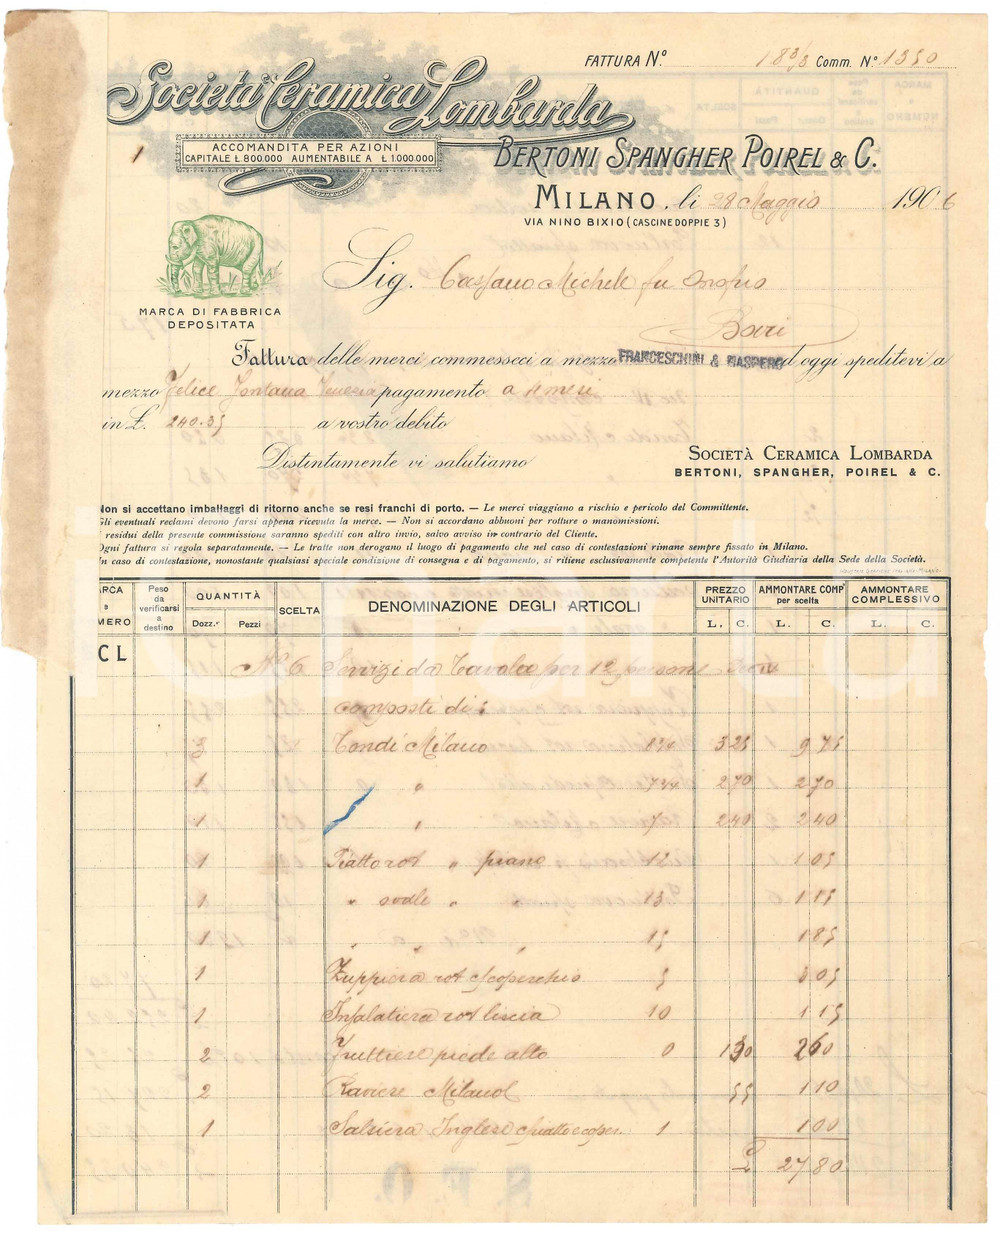 FATTURA N.º 18 3/3 Comm. N.º 1350
Società Ceramica Lombarda
ACCOMANDITA PER AZIONI
CAPITALE Ł.800.000 AUMENTABILE A Ł 1.000.000
BERTONI SPANGHER POIREL & C.
MILANO, li 28 Maggio 1906
VIA NINO BIXIO (CASCINE DOPPIE 3)
Sig. Cassano Michele fu Onofrio
Bari
MARCA DI FABBRICA
DEPOSITATA
Fattura delle merci commesseci a mezzo FRANCESCHINI & MASPERO d'oggi speditevi a
mezzo Felice Fontana Venezia pagamento a 4 mesi
in £. 240.35 a vostro debito
Distintamente vi salutiamo
SOCIETÀ CERAMICA LOMBARDA
BERTONI, SPANGHER, POIREL & C.
Non si accettano imballaggi di ritorno anche se resi franchi di porto. — Le merci viaggiano a rischio e pericolo del Committente.
Gli eventuali reclami devono farsi appena ricevuta la merce. — Non si accordano abbuoni per rotture o manomissioni.
residui della presente commissione saranno spediti con altro invio, salvo avviso in contrario del Cliente.
Ogni fattura si regola separatamente. — Le tratte non derogano il luogo di pagamento che nel caso di contestazioni rimane sempre fissato in Milano.
In caso di contestazione, nonostante qualsiasi speciale condizione di consegna e di pagamento, si ritiene esclusivamente competente l'Autorità Giudiaria della Sede della Società.
ARCA e MERO Peso da verificarsi a destino QUANTITÀ Dozz.e Pezzi SCELTA DENOMINAZIONE DEGLI ARTICOLI PREZZO UNITARIO L. C. AMMONTARE COMP. per scelta L. C. AMMONTARE COMPLESSIVO L. C.
CL Nº 6 Servizi da Tavola per 12 persone
composti di:
3 Tondi Milano 3 25 9 75
1 " " 7 3/4 2 70 2 70
1 " " 7 2 40 2 40
1 Piatto rot " piano 12 1 05
1 " ovale " " 13 1 15
1 " " " " 15 1 85
1 Zuppiera rot c/coperchio 5 3 05
1 Insalatiera rot liscia 10 1 15
2 Fruttiere piede alto 0 1 30 2 60
2 Raviere Milano 55 1 10
1 Salsiera Inglese 1 1 00
£ 27 80